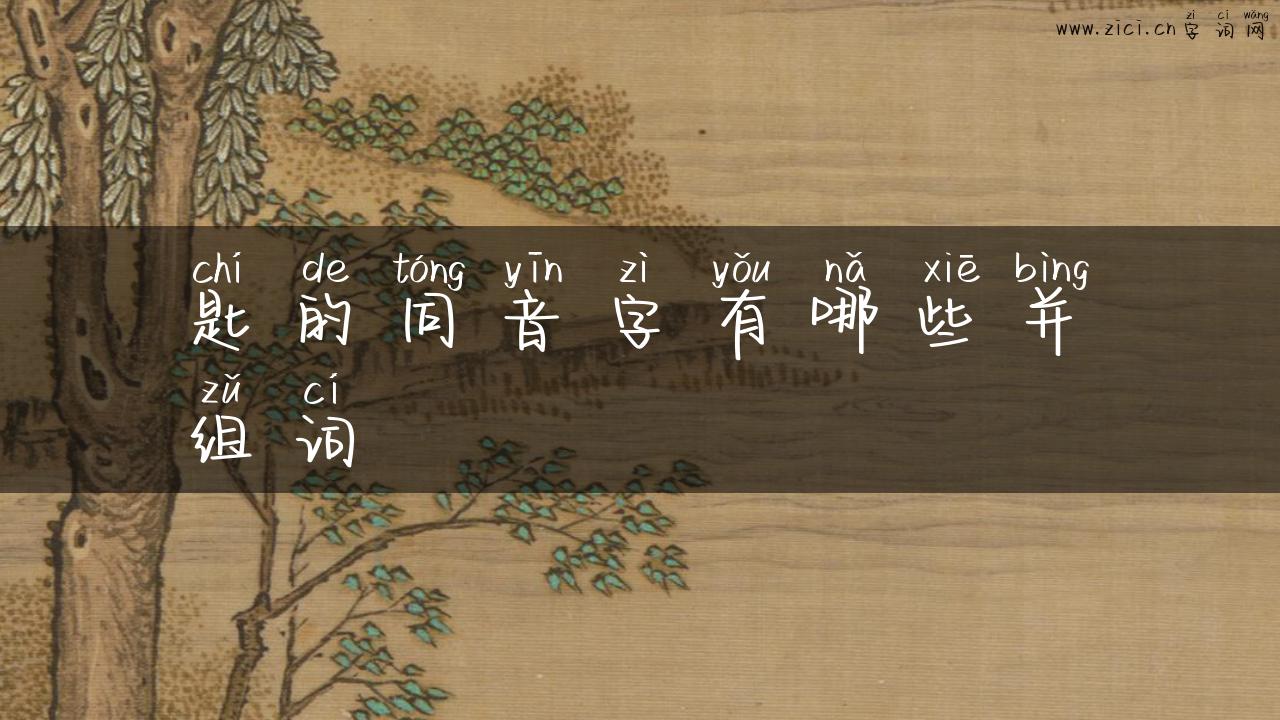 zì cí wǎng
www.zici.cn字词网
chí de tóng yīn zì yǒu nǎ xiē bìng
匙的同音字有哪些并
zǔ cí
组词